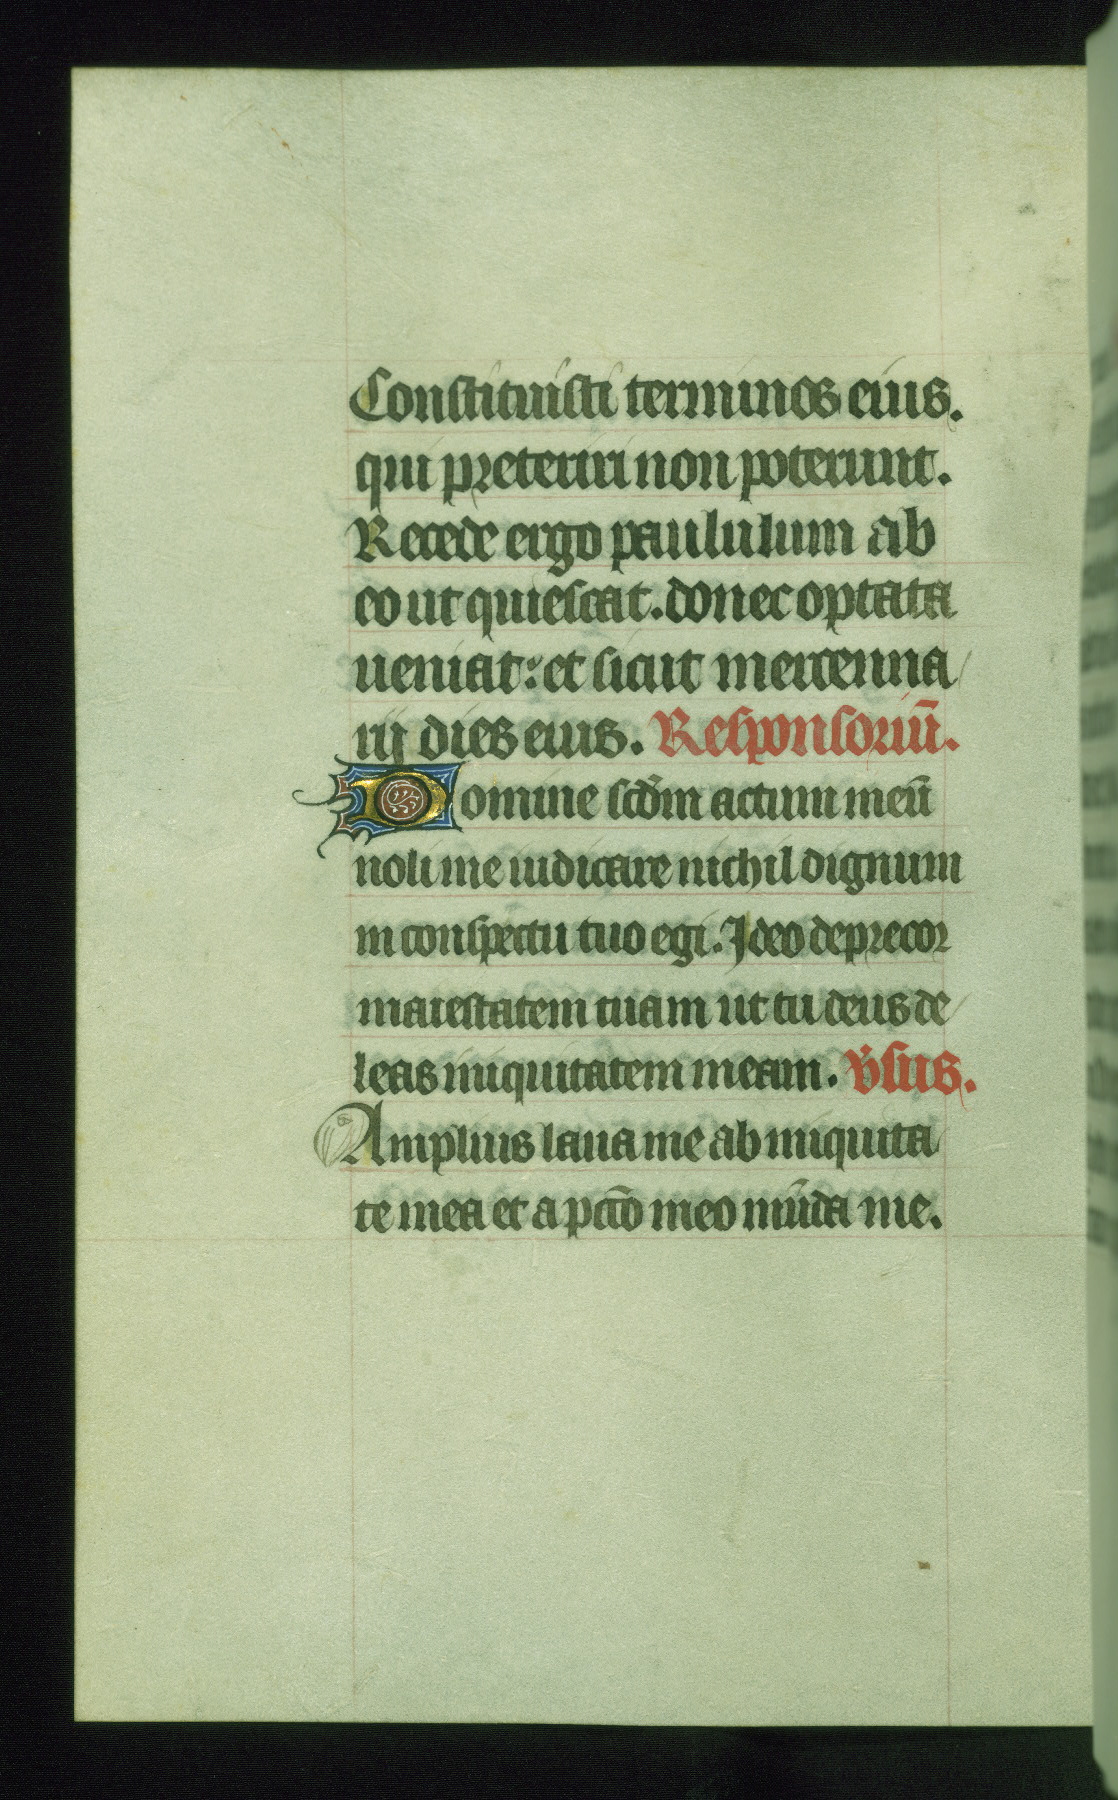 Constituisti terminos eius.
qui preteriri non poterunt.
Recede ergo paululum ab
eo ut quiescat. donec optata
ueniat: et sicut mercenna/
rij dies eius. Responsoriū.
Domine scd̄m actum meū
noli me iudicare nichil dignum
in conspectu tuo egi. Ideo deprecor
maiestatem tuam ut tu deus de/
leas iniquitatem meam. v̄sus.
Amplius laua me ab iniquita/
te mea et a pctō meo mūda me.